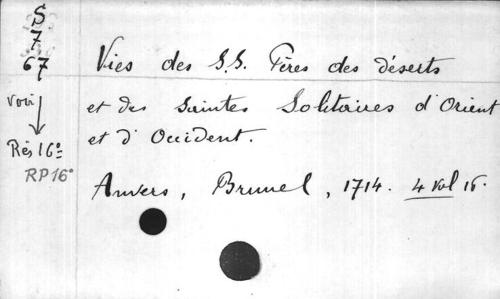 S
7
67
Vies des S.S. Pères des déserts
voir
et des Saintes Solitaires d'Orient
Rés 16º
et d'Occident.
RP 16º
Anvers, Brunel, 1714. 4 vol 16.